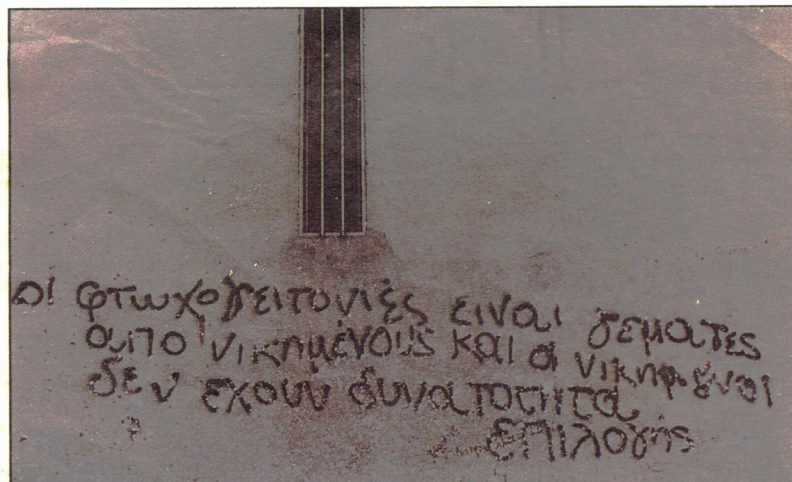 οι φτωχογειτονιές ειναι γεματες
απο νικημένους και οι νικημενοι
δεν εχουν δυνατοτητα
επιλογής